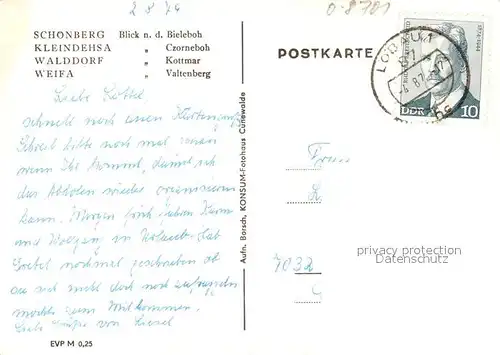 2 8 74
0-8701
SCHONBERG Blick n. d. Bieleboh
KLEINDEHSA " Czorneboh
WALDDORF " Kottmar
WEIFA " Valtenberg
POSTKARTE
LÖBAU 1
DDR 10
Liebe
schnell noch einen Kartengruß
Schreib bitte noch mal genau
wenn Ihr kommt, damit ich
das Abholen wieder organisieren
kann. Morgen früh fahren
und Wolfgang in Urlaub. Hab
nochmal geschrieben ob
sie mich doch noch
möchte zum Mitkommen.
Liebe Grüße von
Aufn. Borsch, KONSUM-Fotohaus Cunewalde
Frau
L.
7032
privacy protection
Datenschutz
EVP M 0,25